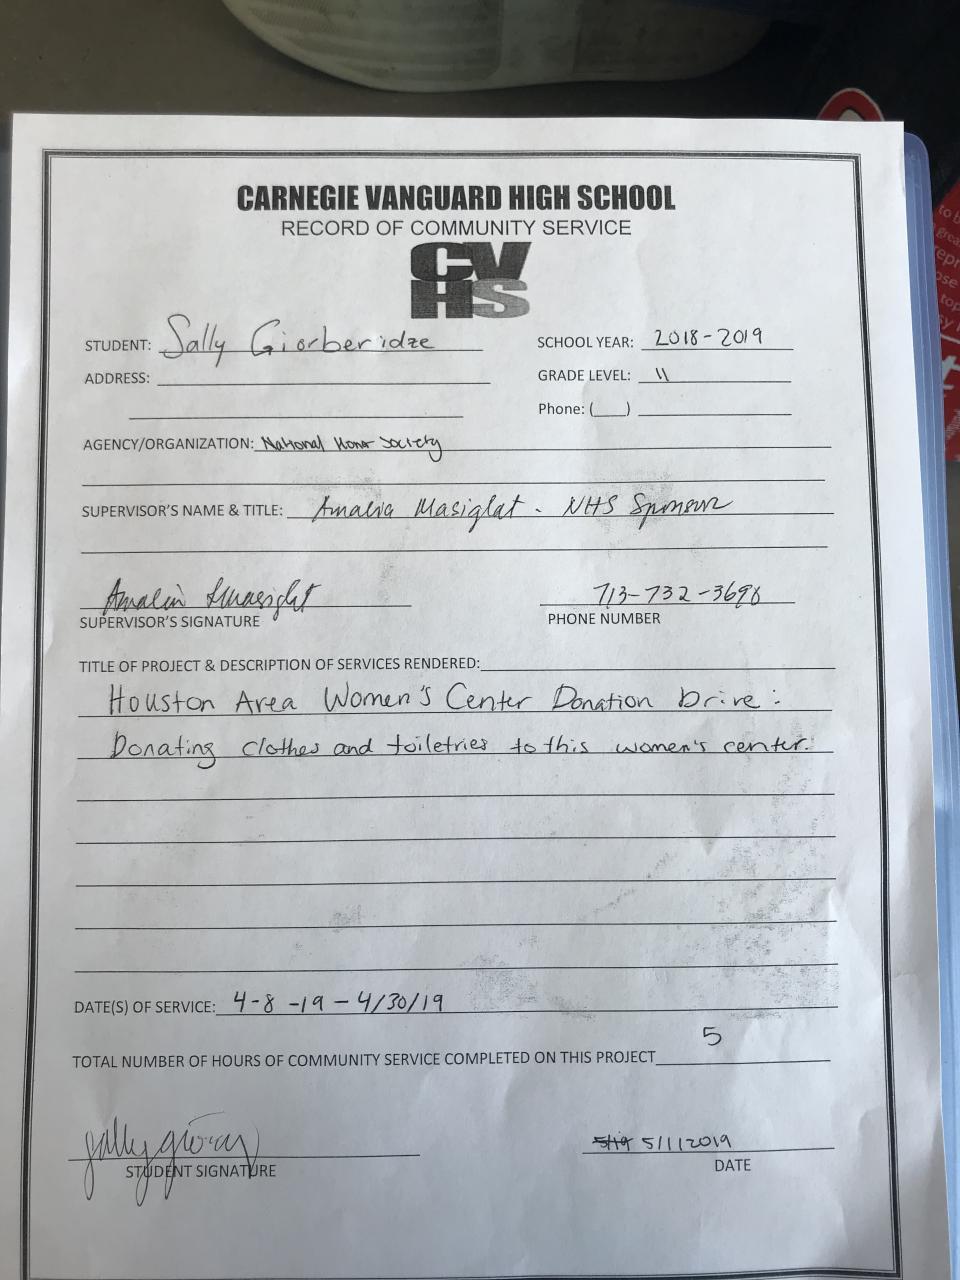 CARNEGIE VANGUARD HIGH SCHOOL
RECORD OF COMMUNITY SERVICE
CV
HS
STUDENT: Sally Giorberidze
SCHOOL YEAR: 2018-2019
ADDRESS:
GRADE LEVEL: 11
Phone: (___)
AGENCY/ORGANIZATION: National Honor Society
SUPERVISOR'S NAME & TITLE: Amalia Masiglat - NHS Sponsor
Amalia
713-732-3698
SUPERVISOR'S SIGNATURE
PHONE NUMBER
TITLE OF PROJECT & DESCRIPTION OF SERVICES RENDERED:
Houston Area Women's Center Donation Drive:
Donating clothes and toiletries to this women's center.
DATE(S) OF SERVICE: 4-8-19 - 4/30/19
TOTAL NUMBER OF HOURS OF COMMUNITY SERVICE COMPLETED ON THIS PROJECT 5
Sally
5/1/2019
STUDENT SIGNATURE
DATE